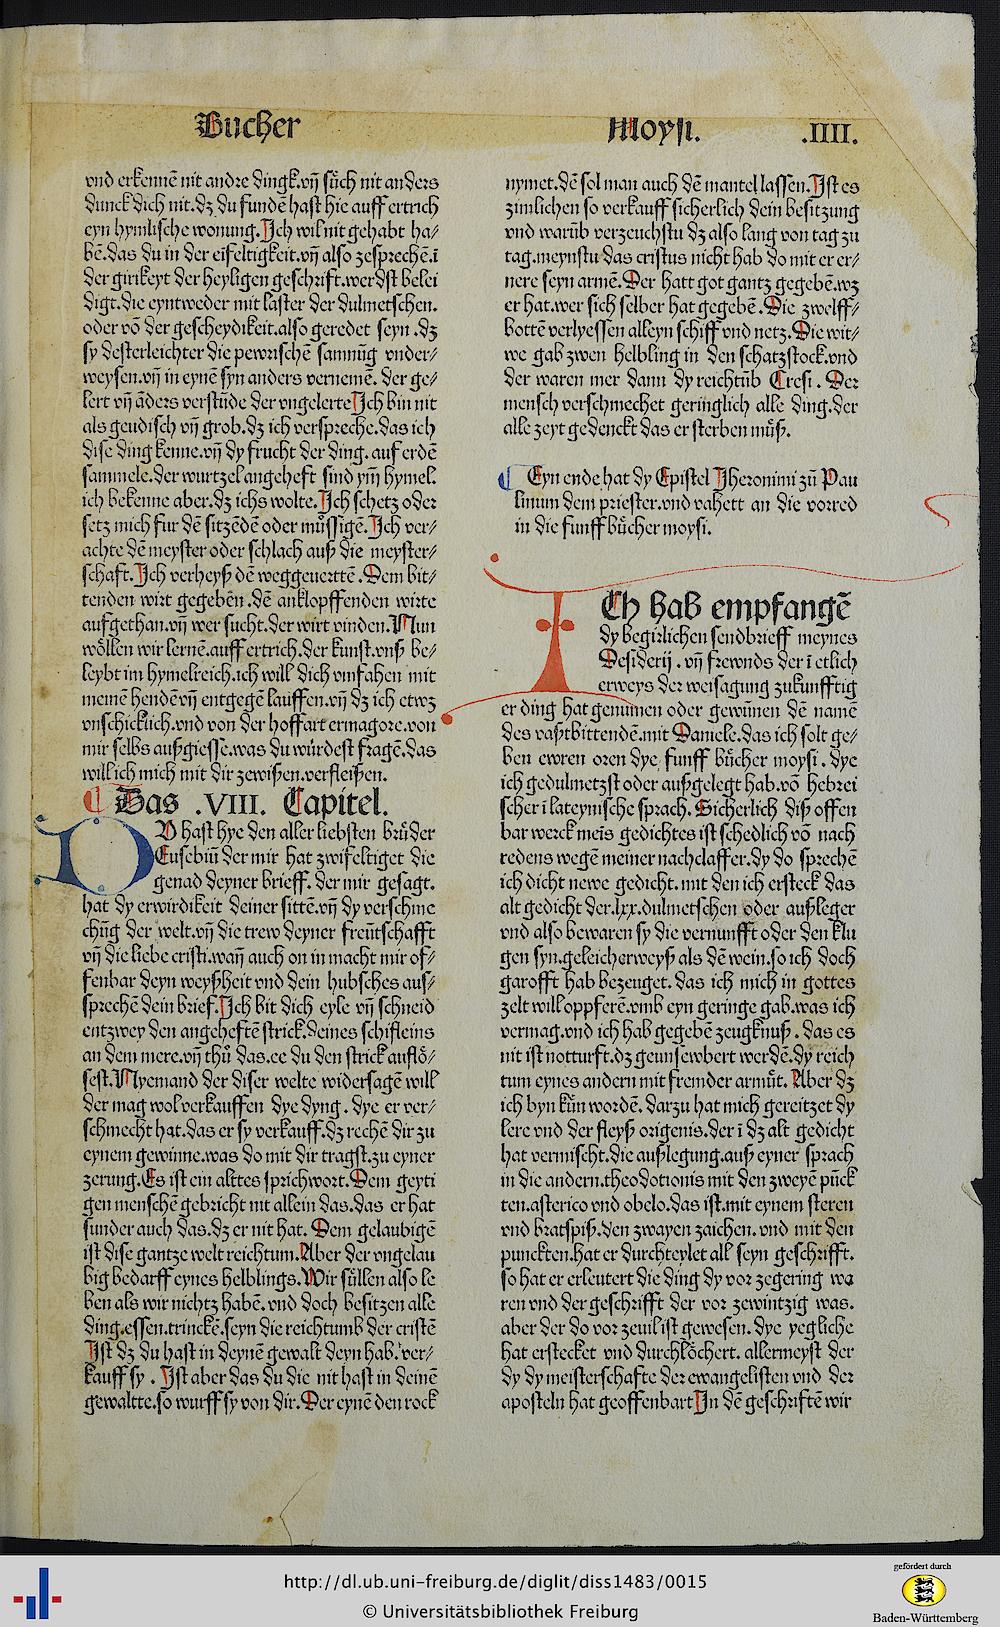 Bücher Moysi. .IIII.
vnd erkennē nit andre dingk.vn̄ sůch nit anders
dunck dich nit.dz du fundē hast hie auff ertrich
eyn hymlische wonung.Jch wil nit gehabt ha⸗
bē.das du in der eīfeltigkeit.vn̄ also zesprechē.ī
der girikeyt der heyligen geschrift.werdst belei
digt.die eyntweder mit laster der dulmetschen.
oder vō der gescheydikeit.also geredet seyn.dz
sy desterleichter die pewrischē samnūg vnder⸗
weysen.vn̄ in eynē syn anders vernemē. der ge⸗
lert vn̄ āders verstūde der vngelerte Jch bin nit
als geudisch vn̄ grob.dz ich verspreche.das ich
dise ding kenne.vn̄ dy frucht der ding. auf erdē
sammele.der wurtzel angeheft sind ym̄ hymel.
ich bekenne aber.dz ichs wolte.Jch schetz oder
setz mich fur dē sitzēdē oder můssigē.Jch ver⸗
achte dē meyster oder schlach auß die meyster⸗
schaft.Jch verheyß dē weggeuerttē.Dem bit⸗
tenden wirt gegebēn.dē anklopffenden wirte
aufgethan.vn̄ wer sucht.der wirt vinden.Nun
wöllen wir lernē.auff ertrich.der kunst.vnß be⸗
leybt im hymelreich.ich will dich vnfahen mit
meinē hendē vn̄ entgegē lauffen.vn̄ dz ich etwz
vnschicklich.vnd von der hoffart ermagore.von
mir selbs außgiesse.was du würdest fragē.das
will ich mich mit dir zewißen.verfleißen.
Das .VIII. Capitel.
DV hast hye den aller liebsten brůder
Eusebiū der mir hat zwifeltiget die
genad deyner brieff. der mir gesagt.
hat dy erwirdikeit deiner sittē.vn̄ dy verschme
chūg der welt.vn̄ die trew deyner freūtschafft
vn̄ die liebe cristi.wan̄ auch on in macht mir of⸗
fenbar deyn weyßheit vnd dein hubsches auf⸗
sprechē dein brief.Jch bit dich eyle vn̄ schneid
entzwey den angeheftē strick.deines schifleins
an dem mere.vn̄ thů das.ee du den strick auflö⸗
sest.Nyemand der diser welte widersagē will
der mag wol verkauffen dye dyng. dye er ver⸗
schmecht hat.das er sy verkauff.dz rechē dir zu
eynem gewinne.was do mit dir tragst.zu eyner
zerung.Es ist ein alttes sprichwort.Dem geyti
gen menschē gebricht nit allein das.das er hat
sunder auch das.dz er nit hat. Dem gelaubigē
ist dise gantze welt reichtum.Aber der vngelau
big bedarff eynes helblings.Wir süllen also le
ben als wir nichtz habē.vnd doch besitzen alle
ding.essen.trinckē.seyn die reichtumb der cristē
Jst dz du hast in deynē gewalt deyn hab.ver⸗
kauff sy. Jst aber das du die nit hast in deinē
gewaltte.so wurff sy von dir.Der eynē den rock
nymet.dē sol man auch dē mantel lassen.Jst es
zimlichen so verkauff sicherlich dein besitzung
vnd warūb verzeuchstu dz also lang von tag zu
tag.meynstu das cristus nicht hab do mit er er⸗
nere seyn armē.Der hatt got gantz gegebē.wz
er hat.wer sich selber hat gegebē.Die zwelff⸗
bottē verlyessen alleyn schiff vnd netz.Die wit⸗
we gab zwen helbling in den schatzstock.vnd
der waren mer dann dy reichtūb Cresi. Der
mensch verschmechet geringlich alle ding.der
alle zeyt gedenckt das er sterben můß.
Eyn ende hat dy Epistel Jheronimi zů Pau
linum dem priester.vnd vahett an die vorred
in die funff bůcher moysi.
ICh hab empfangē
dy begirlichen sendbrieff meynes
Desiderij. vn̄ frewnds der ī etlich
erweys der weisagung zukunfftig
er ding hat genumen oder gewūnen dē namē
des vaßtbittendē.mit Daniele.das ich solt ge⸗
ben ewren oren dye funff bůcher moysi. dye
ich gedulmetzst oder außgelegt hab.vō hebrei
scher ī lateynische sprach. Sicherlich diß offen
bar werck meīs gedichtes ist schedlich vō nach
redens wegē meiner nachclaffer.dy do sprechē
ich dicht newe gedicht.mit den ich ersteck das
alt gedicht der.lxx.dulmetschen oder außleger
vnd also bewaren sy die vernunfft oder den klu
gen syn.geleicherweyß als dē wein.so ich doch
gar offt hab bezeuget. das ich mich in gottes
zelt will oppferē.vmb eyn geringe gab.was ich
vermag.vnd ich hab gegebē zeugknuß. das es
nit ist notturft.dz geunsewbert werdē.dy reich
tum eynes andern mit fremder armůt. Aber dz
ich byn kün wordē. darzu hat mich gereitzet dy
lere vnd der fleyß origenis.der ī dz alt gedicht
hat vermischt.die außlegung.auß eyner sprach
in die andern.theodotionis mit den zweyē pūck
ten.asterico vnd obelo.das ist.mit eynem steren
vnd bratspiß.den zwayen zaichen. vnd mit den
punckten.hat er durchteylet all seyn geschrifft.
so hat er erleutert die ding dy vor zegering wa
ren vnd der geschrifft der vor zewintzig was.
aber der do vor zeuil ist gewesen. dye yegliche
hat erstecket vnd durchlöchert. allermeyst der
dy dy meisterschafte der ewangelisten vnd der
aposteln hat geoffenbart Jn dē geschriftē wir
http://dl.ub.uni-freiburg.de/diglit/diss1483/0015
© Universitätsbibliothek Freiburg
gefördert durch
Baden-Württemberg